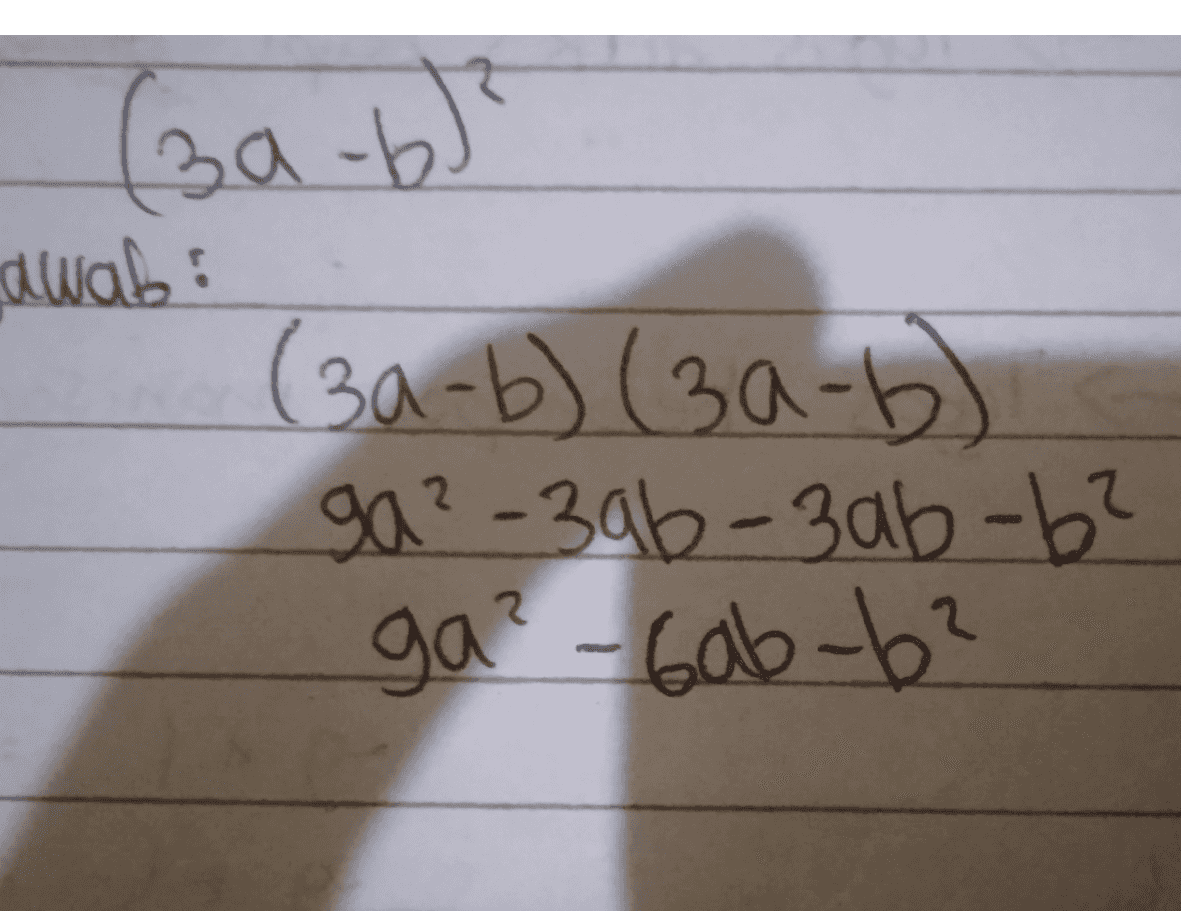 (3a - b)²
awab :
(3a - b) (3a - b)
9a² - 3ab - 3ab - b²
9a² - 6ab - b²